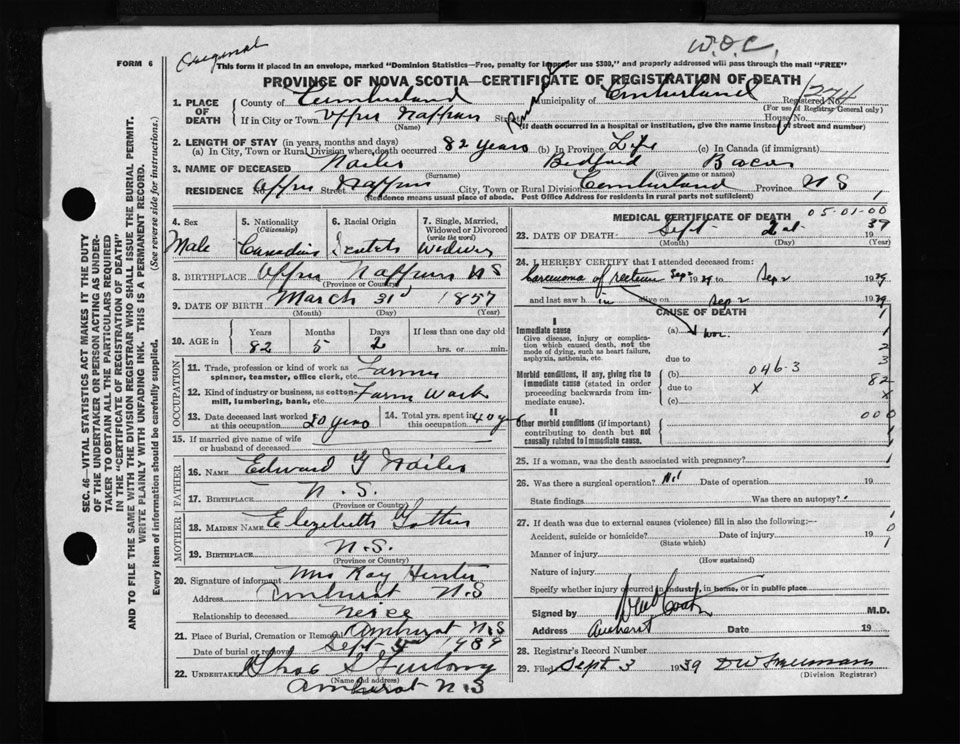 Original W.O.C.
FORM 6 This form if placed in an envelope, marked "Dominion Statistics—Free, penalty for improper use $300," and properly addressed will pass through the mail "FREE"
PROVINCE OF NOVA SCOTIA—CERTIFICATE OF REGISTRATION OF DEATH
1. PLACE OF DEATH County of Cumberland Municipality of Cumberland Registered No. 1274
(For use of Registrar General only)
If in City or Town Upper Nappan Street House No.
(Name) If death occurred in a hospital or institution, give the name instead of street and number)
2. LENGTH OF STAY (in years, months and days)
(a) In City, Town or Rural Division where death occurred 82 years (b) In Province Life (c) In Canada (if immigrant)
3. NAME OF DECEASED Bedford
(Surname) (Given name or names)
RESIDENCE Street Upper Nappan City, Town or Rural Division Cumberland Province N S 1
(Residence means usual place of abode. Post Office Address for residents in rural parts not sufficient)
4. Sex 5. Nationality (Citizenship) 6. Racial Origin 7. Single, Married, Widowed or Divorced (write the word)
Male Canadian
8. BIRTHPLACE Upper Nappan NS
(Province or Country)
9. DATE OF BIRTH March 31 1857
(Month) (Day) (Year)
10. AGE in Years Months Days If less than one day old
82 5 2 hrs. or min.
OCCUPATION
11. Trade, profession or kind of work as spinner, teamster, office clerk, etc. Farmer
12. Kind of industry or business, as cotton mill, lumbering, bank, etc. Farm Work
13. Date deceased last worked at this occupation 20 years 14. Total yrs. spent in this occupation 40 yrs
15. If married give name of wife or husband of deceased
FATHER
16. NAME Edward G
17. BIRTHPLACE N. S.
(Province or Country)
MOTHER
18. MAIDEN NAME Elizebeth
19. BIRTHPLACE N.S.
(Province or Country)
20. Signature of informant Mrs Ray Hunter
Address Amherst N.S
Relationship to deceased Neice
21. Place of Burial, Cremation or Removal Amherst N.S
Date of burial or removal Sept 1939
22. UNDERTAKER Chas S Furlong
(Name and address)
Amherst N.S
MEDICAL CERTIFICATE OF DEATH 05-01-00
23. DATE OF DEATH Sept 2nd 39
(Month) (Day) (Year)
24. I HEREBY CERTIFY that I attended deceased from:
Carcinoma of rectum Sep 2 1939 to Sep 2 1939
and last saw h im alive on Sep 2 1939
CAUSE OF DEATH
I
Immediate cause (a)
Give disease, injury or complication which caused death, not the mode of dying, such as heart failure, asphyxia, asthenia, etc. due to
Morbid conditions, if any, giving rise to immediate cause (stated in order proceeding backwards from immediate cause). (b) 046-3
due to X
(c)
1
1
2
3
82
X
000
1
II
Other morbid conditions (if important) contributing to death but not causally related to immediate cause.
25. If a woman, was the death associated with pregnancy? 1
26. Was there a surgical operation? Nil Date of operation 19
State findings Was there an autopsy?
27. If death was due to external causes (violence) fill in also the following:— 1
Accident, suicide or homicide? Date of injury 19 0
(State which) 1
Manner of injury
(How sustained)
Nature of injury
Specify whether injury occurred in industry, in home, or in public place
Signed by M.D.
Address Amherst Date 19
28. Registrar's Record Number
29. Filed Sept 3 1939
(Division Registrar)
SEC. 46—VITAL STATISTICS ACT MAKES IT THE DUTY
OF THE UNDERTAKER OR PERSON ACTING AS UNDER-
TAKER TO OBTAIN ALL THE PARTICULARS REQUIRED
IN THE "CERTIFICATE OF REGISTRATION OF DEATH"
AND TO FILE THE SAME WITH THE DIVISION REGISTRAR WHO SHALL ISSUE THE BURIAL PERMIT.
WRITE PLAINLY WITH UNFADING INK. THIS IS A PERMANENT RECORD.
Every item of information should be carefully supplied. (See reverse side for instructions.)